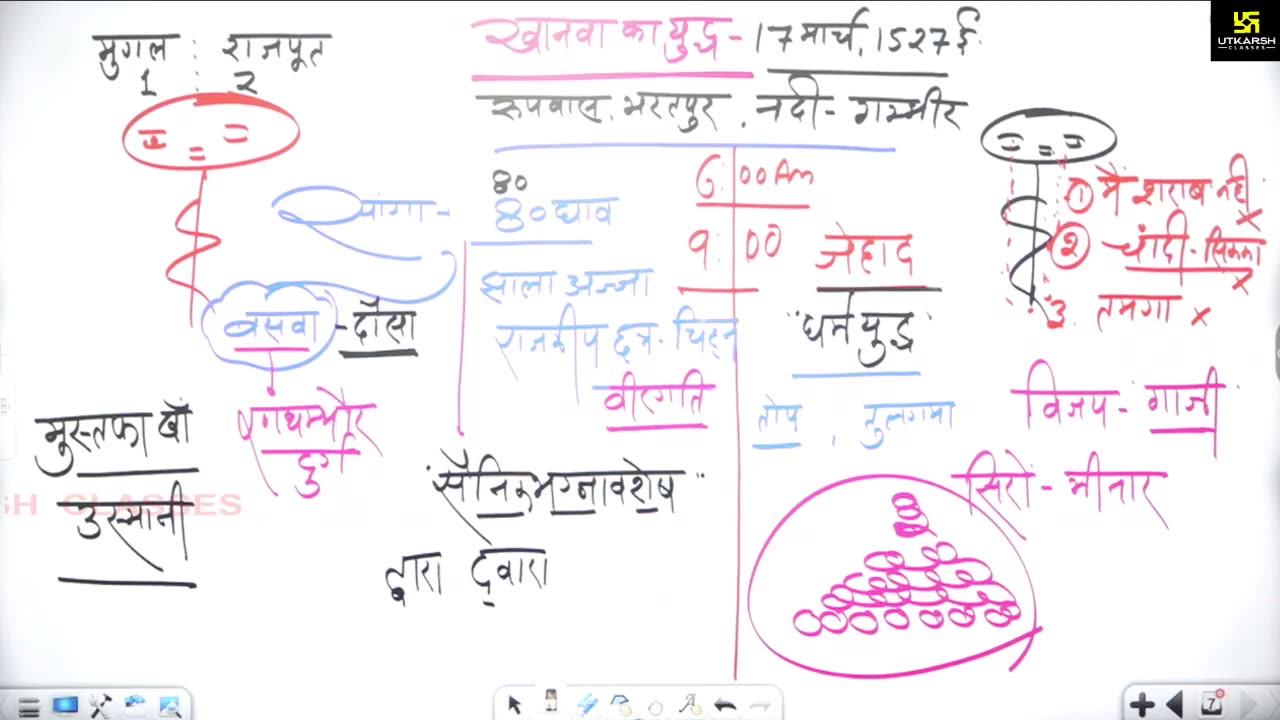 UTKARSH
CLASSES
खानवा का युद्ध - 17 मार्च, 1527 ई.
मुगल : राजपूत
1 : 2
रूपवास, भरतपुर, नदी - गम्भीर
80
80 घाव
6:00 Am
9:00
① मैं शराब नहीं x
② चांदी - सिक्का x
3. तमगा x
जेहाद
"धर्मयुद्ध"
झाला अज्जा
राजकीय छत्र - चिह्न
वीरगति
बसवा - दौसा
रणथम्भौर
दुर्ग
मुस्तफा खाँ
उस्मानी
तोप, तुलगमा
विजय - गाजी
सिरो - मीनार
"सैनिक भग्नावशेष"
द्वारा द्‌वारा
SH CLASSES
7